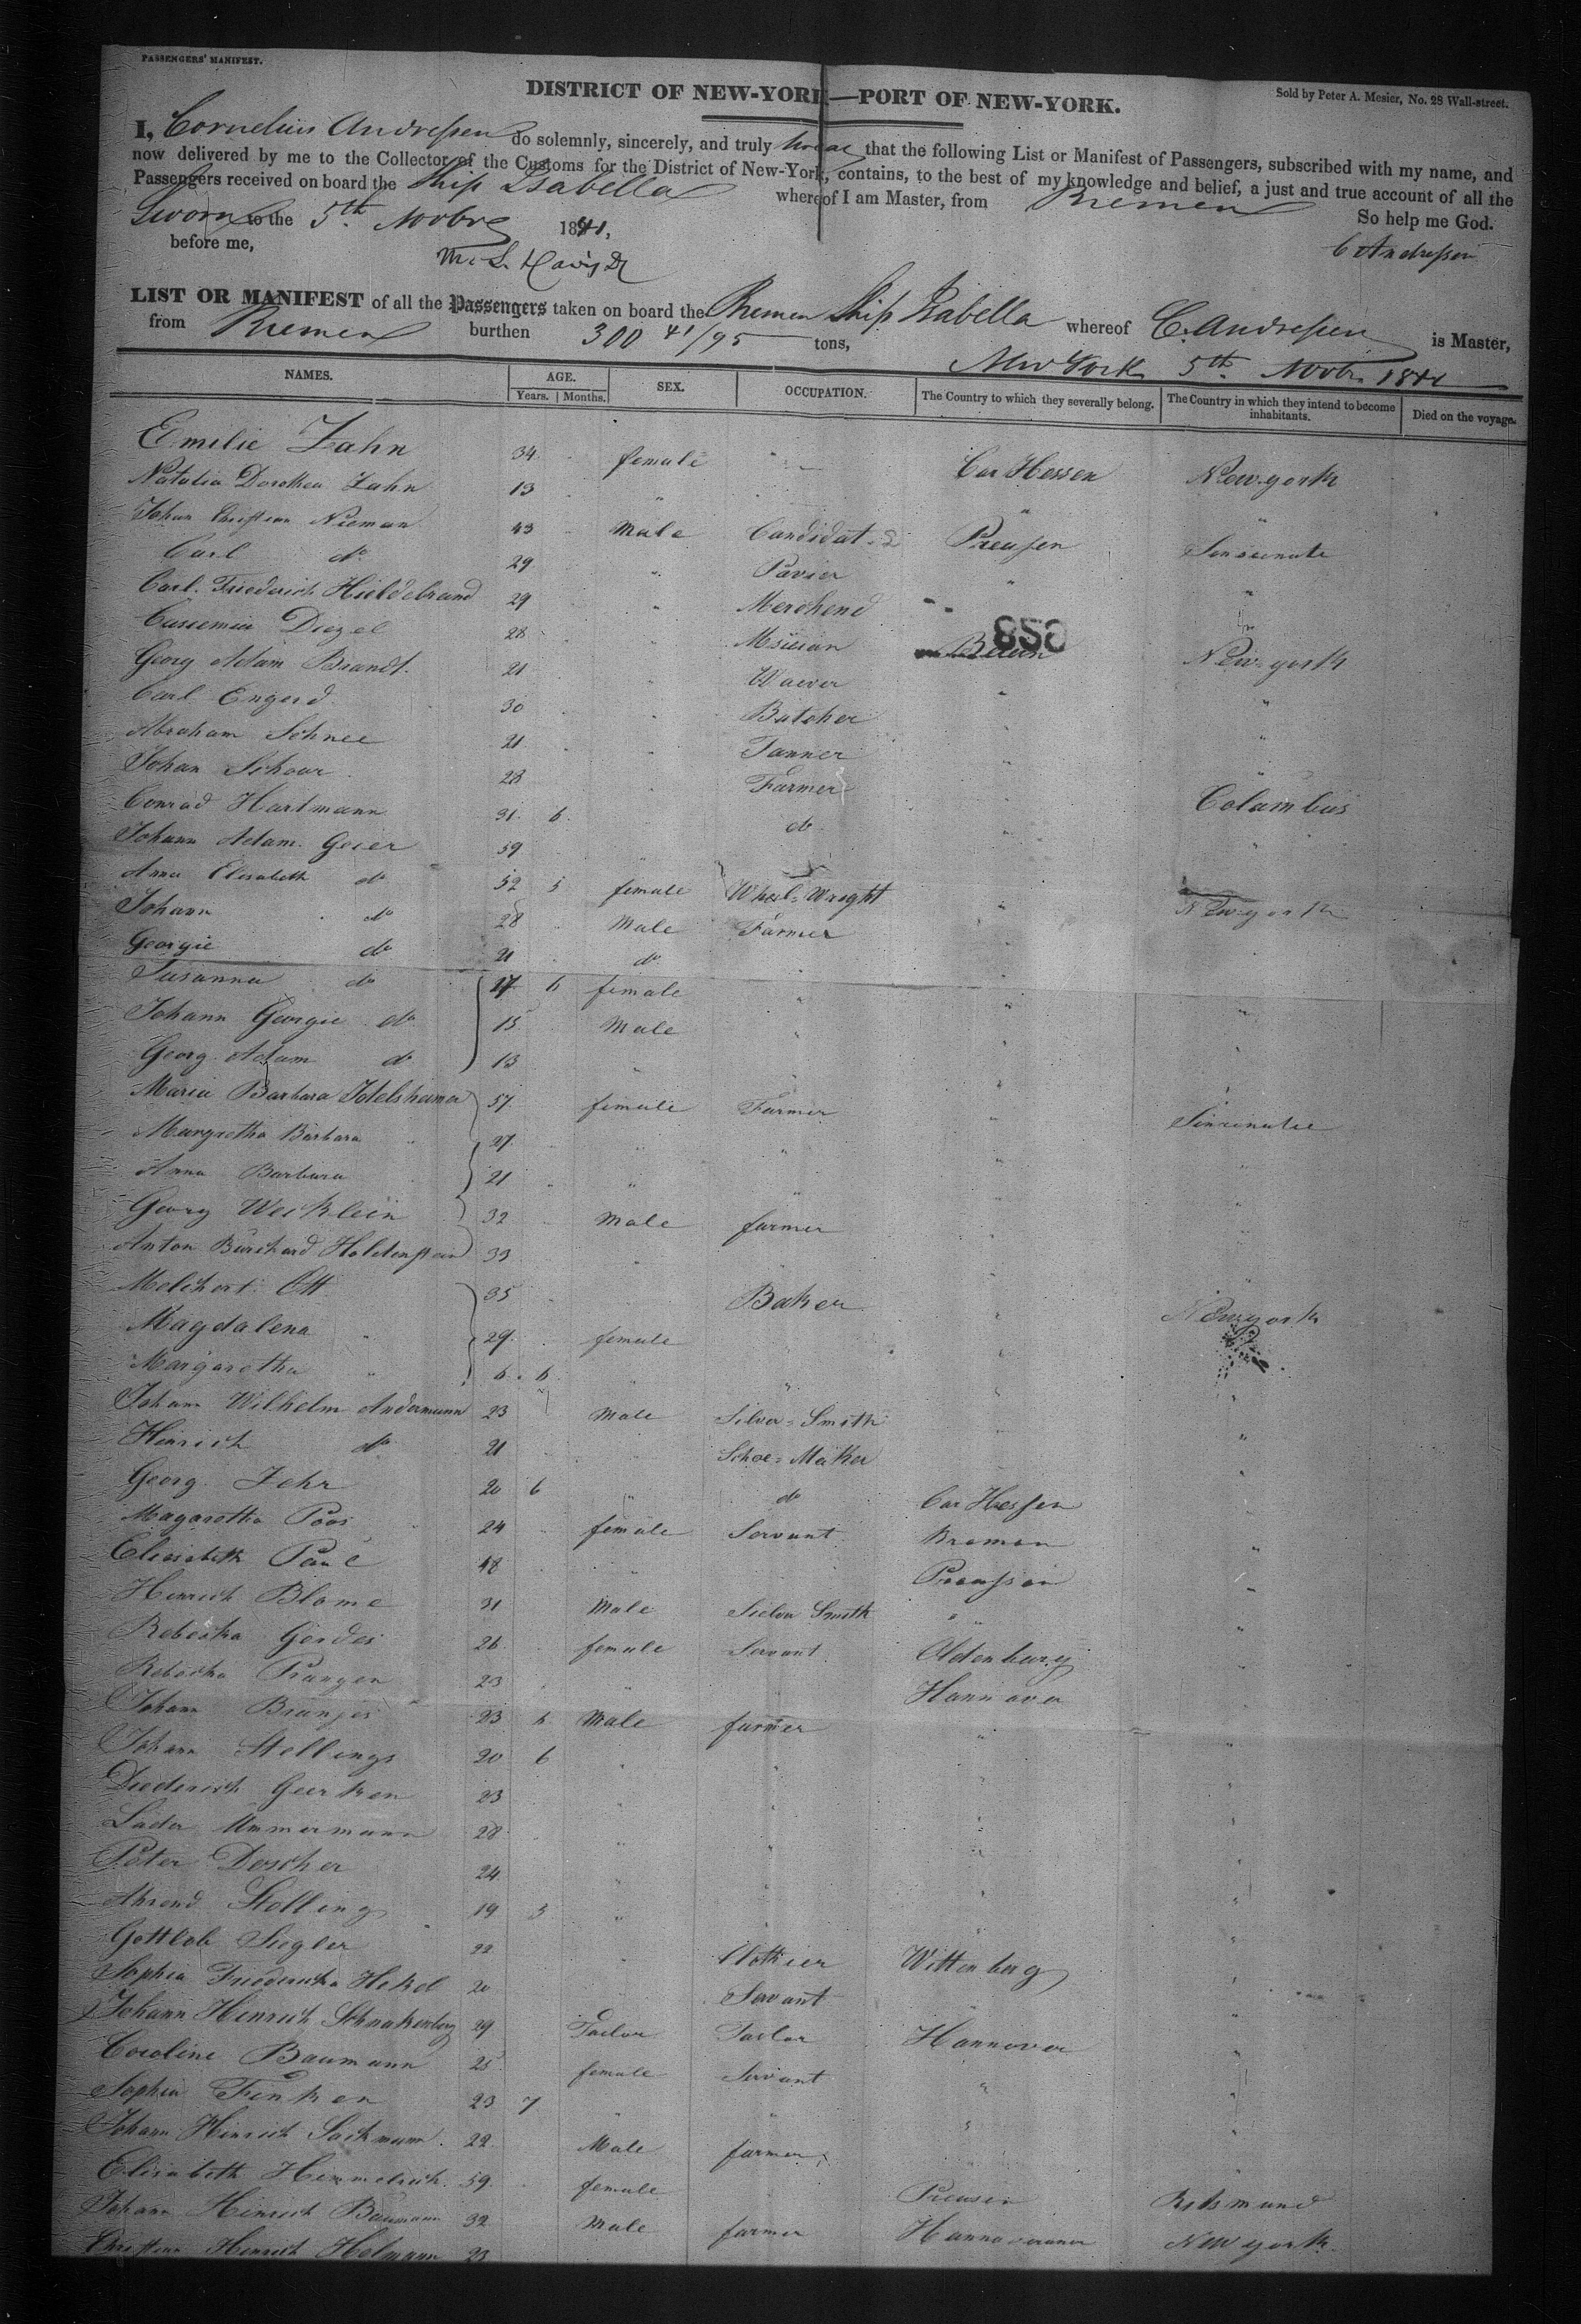 PASSENGERS' MANIFEST.
DISTRICT OF NEW-YORK—PORT OF NEW-YORK.
Sold by Peter A. Mesier, No. 28 Wall-street.
I, Cornelius Andressen do solemnly, sincerely, and truly swear that the following List or Manifest of Passengers, subscribed with my name, and
now delivered by me to the Collector of the Customs for the District of New-York, contains, to the best of my knowledge and belief, a just and true account of all the
Passengers received on board the Ship Isabella whereof I am Master, from Bremen
Sworn to the 5th Novbre 1841, So help me God.
before me, C Andressen
LIST OR MANIFEST of all the Passengers taken on board the Bremen Ship Isabella whereof C. Andressen is Master,
from Bremen burthen 300 41/95 tons,
New York 5th Novbr 1841
NAMES. AGE. SEX. OCCUPATION. The Country to which they severally belong. The Country in which they intend to become inhabitants. Died on the voyage.
Years. Months.
Emilie Zahn 34 female Cur Hessen Newyork
Natalia Dorothea Zahn 13 " " "
Johan Christian Nieman 43 Male Candidat Preusen Sinsinnate
Carl do 29 " Pavier " "
Carl Friederich Hieldebrand 29 " Merchend " "
858
Diezel 28 " Msician Newyork
Georg Adam Brandt 21 " Waever " "
Carl Engerd 30 " Butcher " "
Abraham Schnee 21 " Tanner " "
Johan Schaur 28 " Farmer " Columbus
Conrad Hartmann 31 6 " do " "
Johann Adam Geier 59 "
Anna Elisabeth do 52 5 female Wheel=Wright " Newyork
Johann do 28 Male Farmer "
Georgie do 21 do "
Susanna do 17 6 female " " "
Johann Georgie do 15 Male " " "
Georg Adam do 13 " " " "
Maria Barbara 57 female Farmer " Sinsinnatie
Margretha Barbara " 27 " " " "
Anna Barbara 21 " " " "
Georg Weicklein 32 Male farmer "
Anton Burchard Holdenstein 33 " " " "
Melchort Ott 35 Baker " Newyork
Magdalena " 29 female "
Margaretha " 6 6 " " " "
Johann Wilhelm Andermann 23 Male Silver=Smith "
Hinrich do 21 Schoe=Maker "
Georg Zehr 20 6 " do Cur Hessen
Magaretha Poos 24 female Servant Bremen "
Elisabeth Paul 48 " Preussen "
Heinrich Blome 31 Male Sielver Smith " "
Rebecka Gerdes 26 female Servant Oldenburg "
Rebecka Prangen 23 " " Hannover
Johann Brunjes 23 6 Male farmer " "
Johann Stellings 20 6 " " " "
Diederich Geerken 23 " " " "
Lüder Ummermann 28 " " " "
Peter Doscher 24 " " "
Ahrend Stelling 19 3 " " " "
Gottlob Siegler 22 Clothier Wittenberg
Sophia Friedericka Hekel 20 Servant "
Johann Hinrich Schnakenberg 29 Taelor Taelor Hannover "
Caroline Baumann 25 female Servant " "
Sophia Finken 23 7 " " " "
Johann Hinrich Sackmann 22 Male farmer
Elisabeth Himmelreich 59 female Preusen
Johann Hinrich Baumann 32 Male farmer Newyork
Christian Hinrich Holmann 23